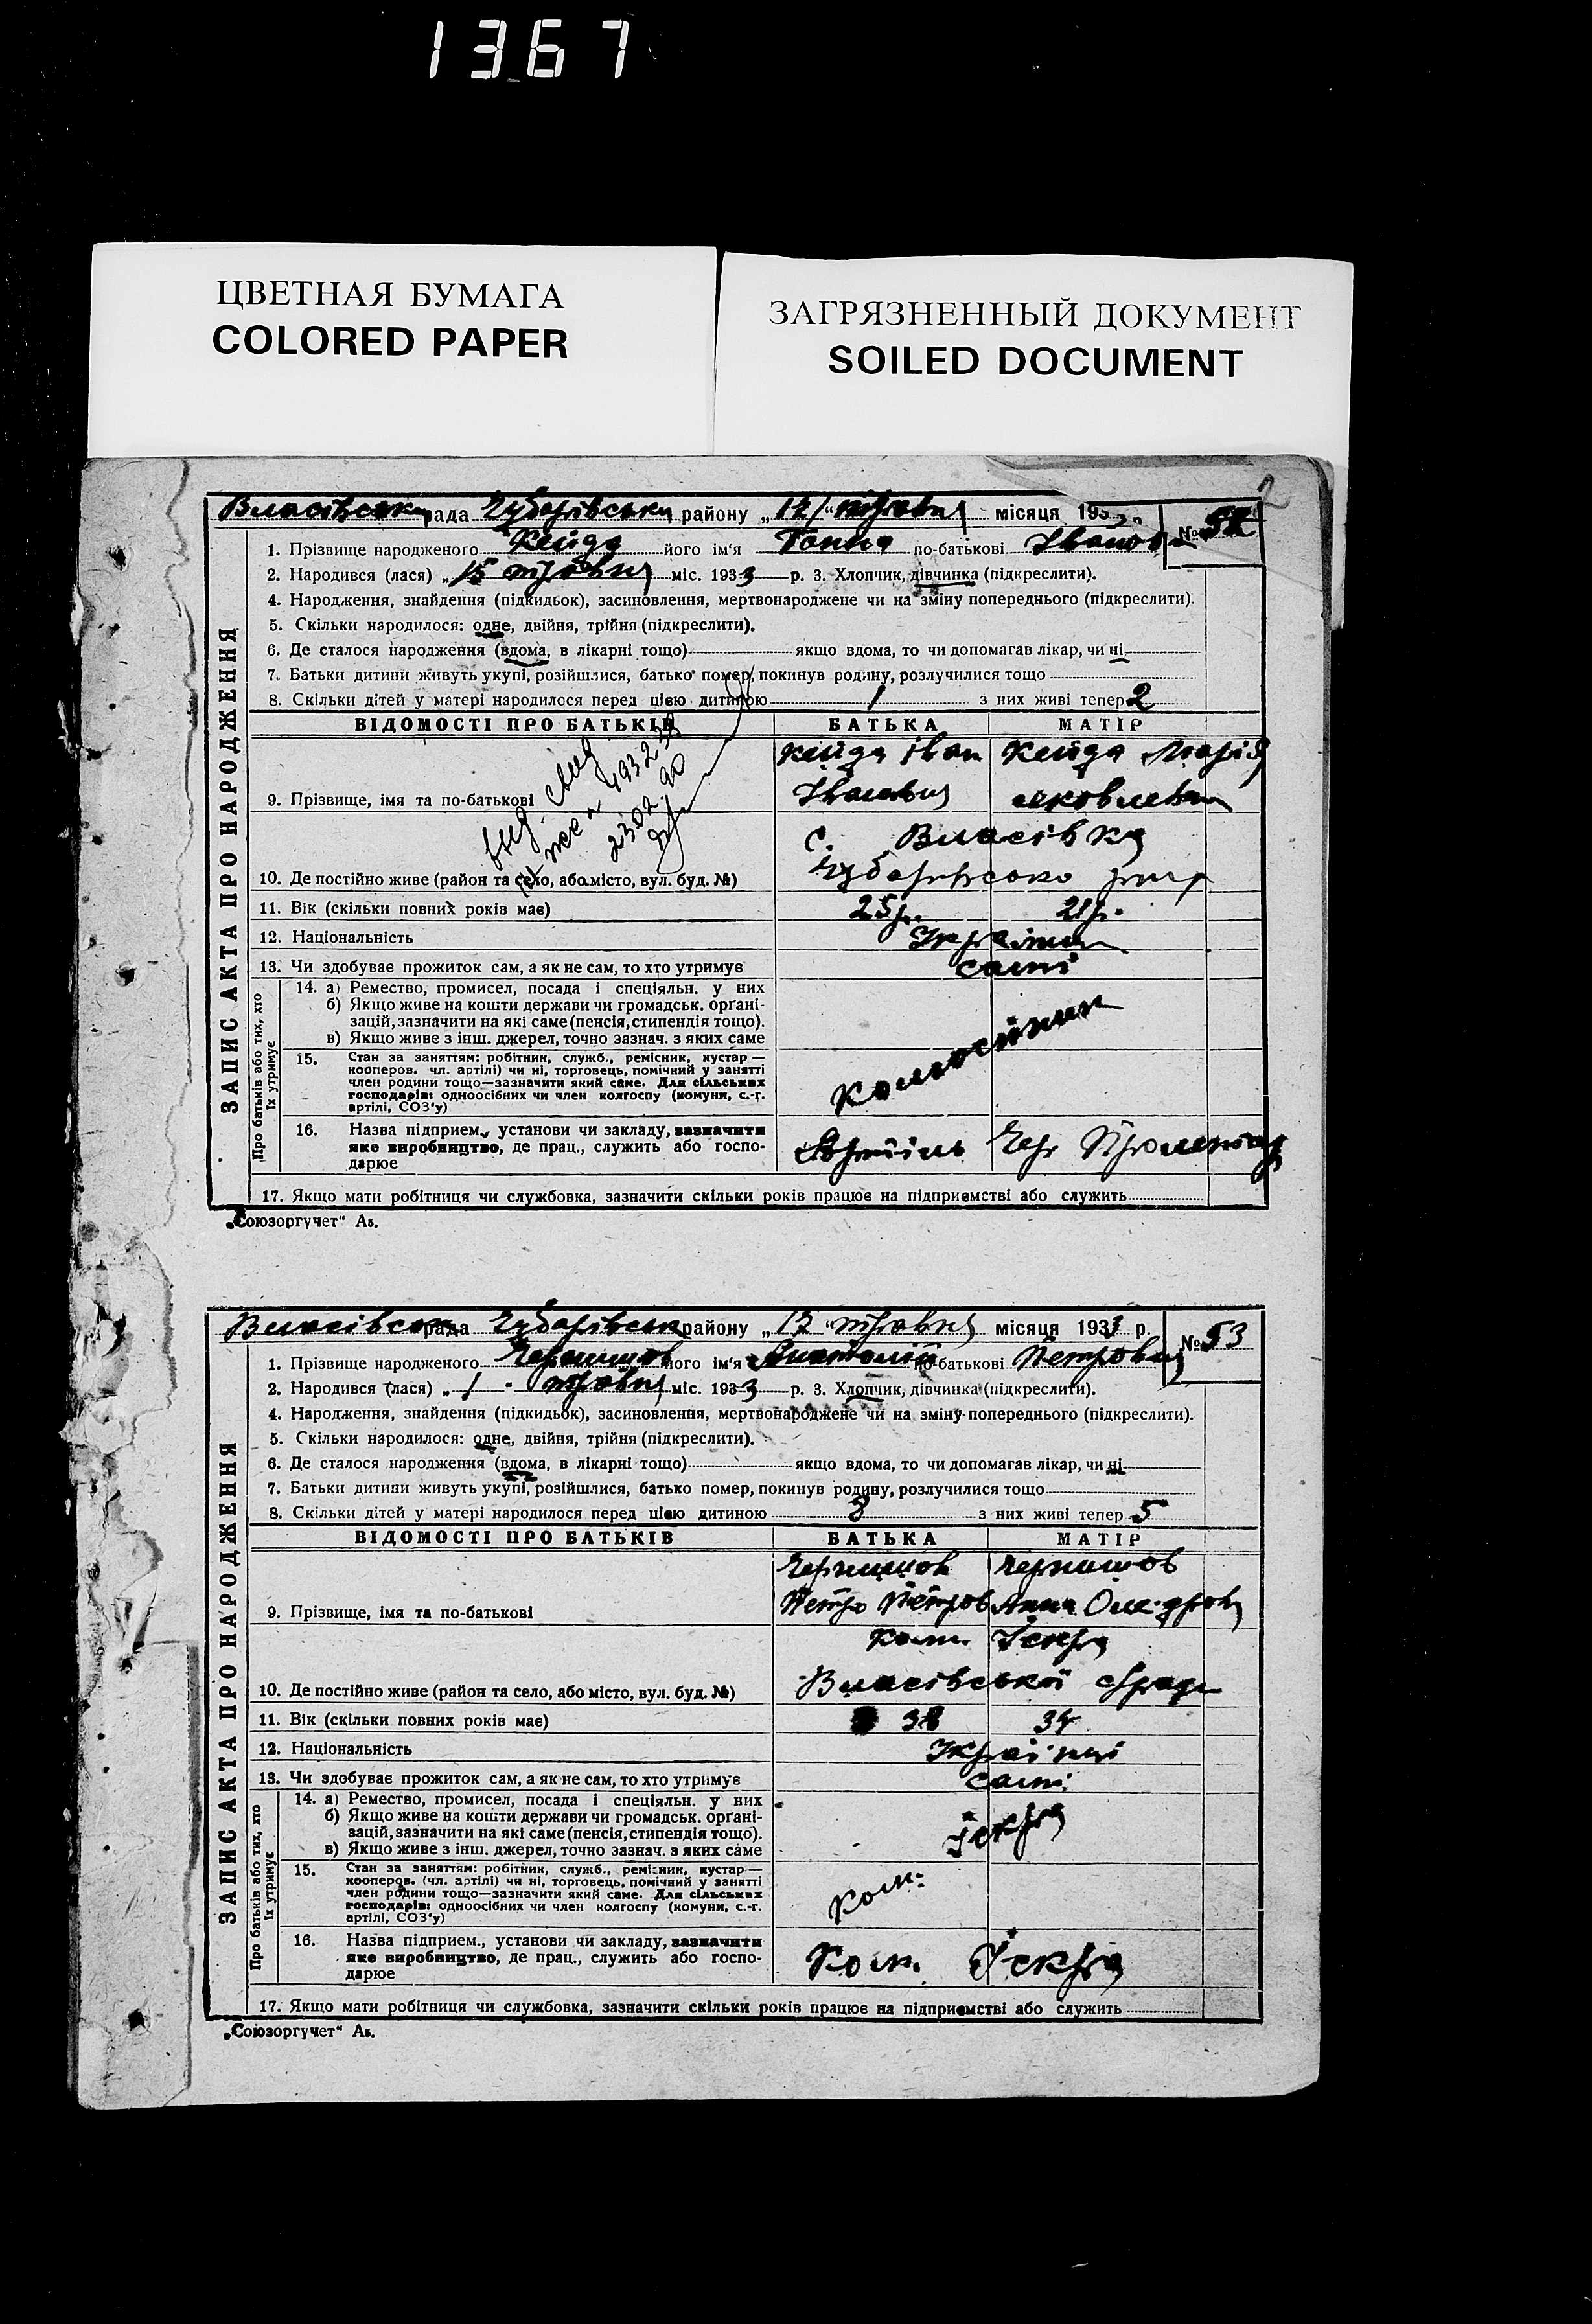 1367
ЦВЕТНАЯ БУМАГА
COLORED PAPER
ЗАГРЯЗНЕННЫЙ ДОКУМЕНТ
SOILED DOCUMENT
Власівська рада Чубарівськ району „ “ травня місяця 193
№ 52
1. Прізвище народженого Кейда його ім'я Ганна по-батькові Іванов
2. Народився (лася) „15 травня міс. 1933 р. 3. Хлопчик, дівчинка (підкреслити).
4. Народження, знайдення (підкидьок), засиновлення, мертвонароджене чи на зміну попереднього (підкреслити).
5. Скільки народилося: одне, двійня, трійня (підкреслити).
6. Де сталося народження (вдома, в лікарні тощо) якщо вдома, то чи допомагав лікар, чи ні
7. Батьки дитини живуть укупі, розійшлися, батько помер, покинув родину, розлучилися тощо
8. Скільки дітей у матері народилося перед цією дитиною 1 з них живі тепер 2
ЗАПИС АКТА ПРО НАРОДЖЕННЯ
ВІДОМОСТІ ПРО БАТЬКІВ БАТЬКА МАТІР
Кейда Іван Кейда Марія
9. Прізвище, імя та по-батькові Іванович Яковлевна
с. Власівка
10. Де постійно живе (район та село, або місто, вул. буд. №)
11. Вік (скільки повних років має) 25р. 21р.
12. Національність
13. Чи здобуває прожиток сам, а як не сам, то хто утримує самі
Про батьків або тих, хто їх утримує
14. а) Ремество, промисел, посада і спеціяльн. у них
б) Якщо живе на кошти держави чи громадськ. орґані-
зацій, зазначити на які саме (пенсія, стипендія тощо).
в) Якщо живе з інш. джерел, точно зазнач. з яких саме
15. Стан за заняттям: робітник, служб., ремісник, кустар—
кооперов. чл. артілі) чи ні, торговець, помічний у занятті
член родини тощо—зазначити який саме. Для сільських
господарів: одноосібних чи член колгоспу (комуни, с.-г.
артілі, СОЗ'у)
16. Назва підприєм., установи чи закладу, зазначити
яке виробництво, де прац., служить або госпо-
дарює
Артіль Черв Пролетар
17. Якщо мати робітниця чи службовка, зазначити скільки років працює на підприємстві або служить
„Союзоргучет“ Аь.
Власівськ рада Чубарівськ району „13 “ травня місяця 1933 р.
№ 53
1. Прізвище народженого Чернишов його ім'я Анатолій по-батькові Петрович
2. Народився (лася) „1 травня міс. 1933 р. 3. Хлопчик, дівчинка (підкреслити).
4. Народження, знайдення (підкидьок), засиновлення, мертвонароджене чи на зміну попереднього (підкреслити).
5. Скільки народилося: одне, двійня, трійня (підкреслити).
6. Де сталося народження (вдома, в лікарні тощо) якщо вдома, то чи допомагав лікар, чи ні
7. Батьки дитини живуть укупі, розійшлися, батько помер, покинув родину, розлучилися тощо
8. Скільки дітей у матері народилося перед цією дитиною 8 з них живі тепер 5
ЗАПИС АКТА ПРО НАРОДЖЕННЯ
ВІДОМОСТІ ПРО БАТЬКІВ БАТЬКА МАТІР
Чернишов Чернишов
9. Прізвище, імя та по-батькові Петро Петров Анна
ком. Іскра
10. Де постійно живе (район та село, або місто, вул. буд. №) Власівської с/ради
11. Вік (скільки повних років має) 38 34
12. Національність Українці
13. Чи здобуває прожиток сам, а як не сам, то хто утримує самі
Про батьків або тих, хто їх утримує
14. а) Ремество, промисел, посада і спеціяльн. у них
б) Якщо живе на кошти держави чи громадськ. орґані-
зацій, зазначити на які саме (пенсія, стипендія тощо).
в) Якщо живе з інш. джерел, точно зазнач. з яких саме
ком. Іскра
15. Стан за заняттям: робітник, служб., ремісник, кустар—
кооперов. (чл. артілі) чи ні, торговець, помічний у занятті
член родини тощо—зазначити який саме. Для сільських
господарів: одноосібних чи член колгоспу (комуни, с.-г.
артілі, СОЗ'у)
16. Назва підприєм., установи чи закладу, зазначити
яке виробництво, де прац., служить або госпо-
дарює
Ком. Іскра
17. Якщо мати робітниця чи службовка, зазначити скільки років працює на підприємстві або служить
„Союзоргучет“ Аь.